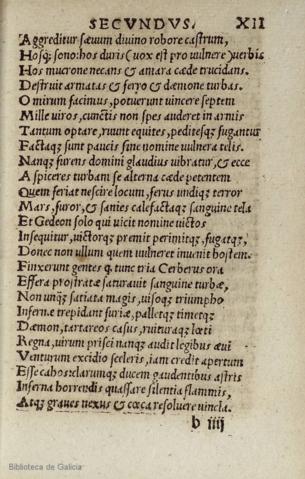 SECVNDVS. XII
Aggreditur sæuum diuino robore castrum,
Hosq; sono: hos duris (uox est pro uulnere) uerbis
Hos mucrone necans & amara cæde trucidans.
Destruit armatas & ferro & dæmone turbas.
O mirum facimus, potuerunt uincere septem
Mille uiros, cunctis non spes auderet in armis
Tantum optare, ruunt equites, peditesq; fugantur
Factaq; sunt paucis sine nomine uulnera telis.
Nanq; furens domini gladius uibratur, & ecce
Aspiceres turbam se alterna cæde petentem
Quem feriat nescire locum, ferus undiq; terror
Mars, furor, & sanies calefactaq; sanguine tela
Et Gedeon solo qui uicit nomine uictos
Insequitur, uictorq; premit perimitq;, fugatq;,
Donec non ullum quem uulneret inuenit hostem.
Finxerunt gentes q̃ tunc tria Cerberus ora
Effera prostratæ saturauit sanguine turbæ,
Non unq̃ satiata magis, uisoq; triumpho
Infernæ trepidant furiæ, palletq; timetq;
Dæmon, tartareos casus, ruituraq; lœti
Regna, uirum prisci nanq; audit legibus æui
Venturum excidio sceleris, iam credit apertum
Esse cahos: clarumq; ducem gaudentibus astris
Inferna horrendis quassare silentia flammis,
Atq; graues nexus & cœca resoluere uincla.
b iiij
Biblioteca de Galicia